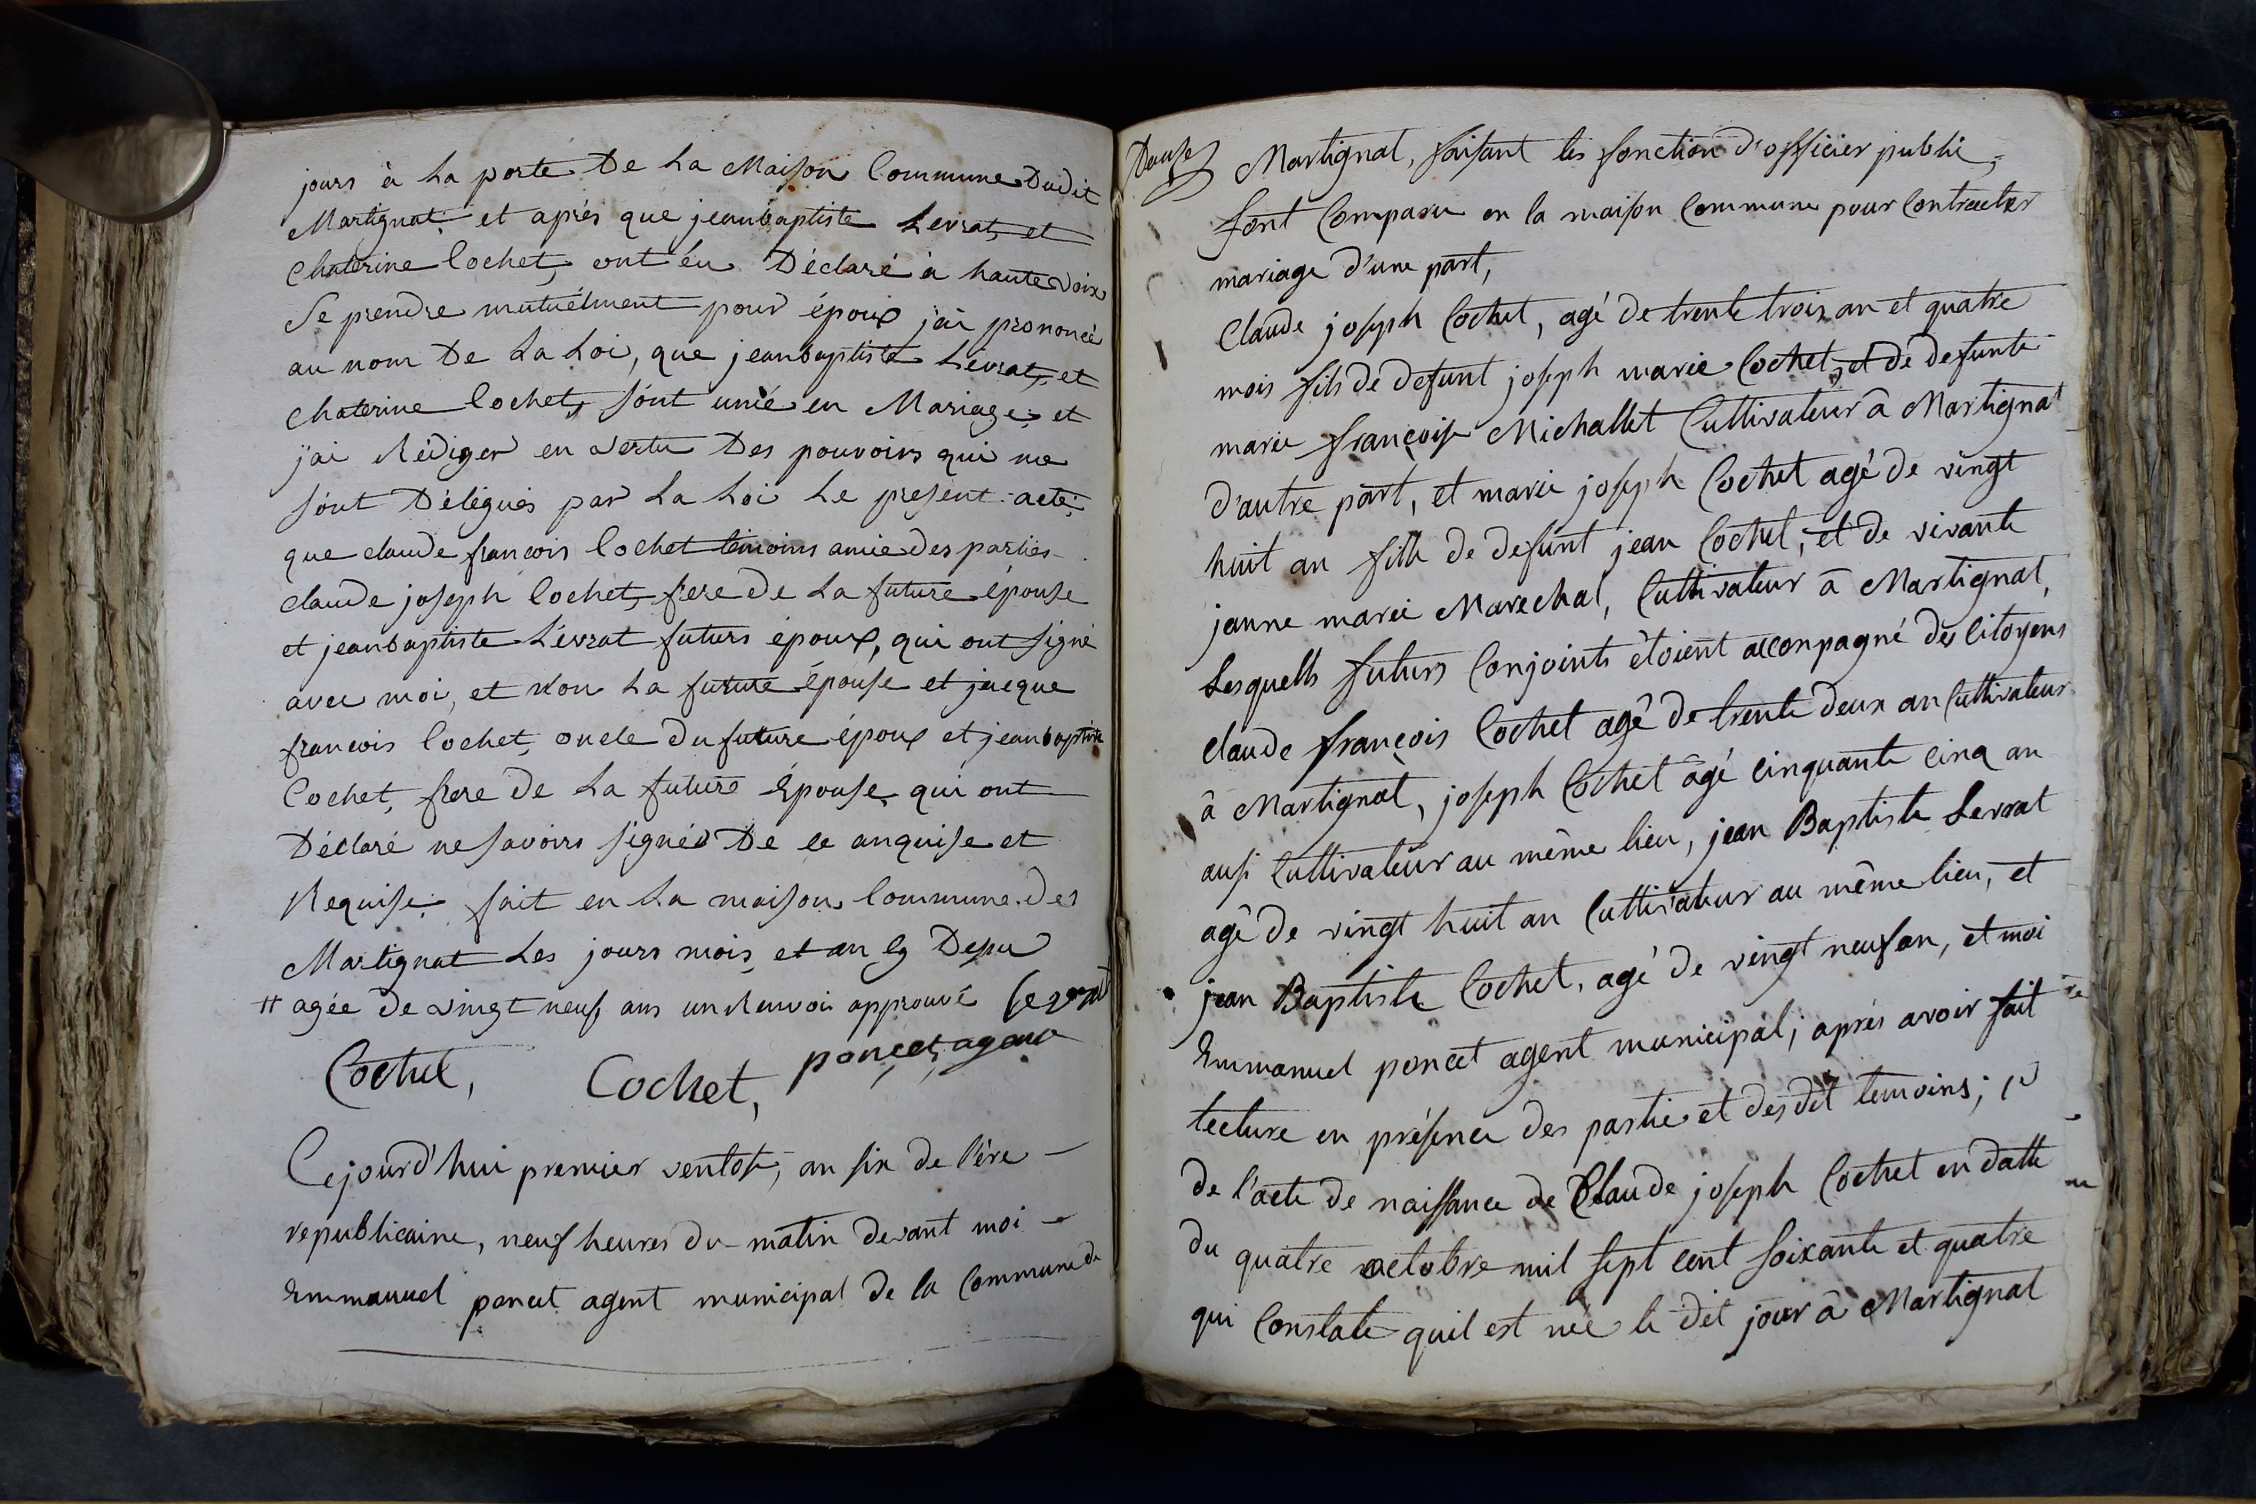 jours à La porte De La Maison Commune Dudit
Martignat; et après que jeanbaptiste Levrat, et
Chaterine Cochet, ont éu Déclaré à haute Voix
Se prendre mutuélment pour époux j'ai prononcé
au nom De La Loi, que jeanbaptiste Lévrat, et
Chaterine Cochet, sont unié en Mariage; et
j'ai Rédiger en Vertu Des pouvoirs qui me
sont Délégués par La Loi Le present acte;
que claude francois Cochet temoins amie des parties
claude joseph Cochet, frere De La future épouse
et jeanbaptiste Lévrat futurs époux, qui ont signé
avec moi, et Non La future épouse et jacque
francois Cochet, oncle Du future époux et jeanbaptiste
Cochet, frere De La future Epouse qui ont
Déclaré ne savoirs signés De ce anquise et
Requise; fait en La maison Commune des
Martignat Les jours mois et an
agée De Vingt neuf ans un Renvoi approuvé Levrat
Cochet, Cochet, poncet, agent
Cejourd'hui premier ventose, an six de l'ére
republicaine, neuf heures du matin devant moi
Emmanuel poncet agent municipal de la Commune de
Douse
Martignat, faisant les fonction d'officier public,
sont Comparu en la maison Commune pour Contracter
mariage d'une part,
Claude joseph Cochet, agé de trente trois an et quatre
mois fils de defunt joseph marie Cochet, et de defunte
marie françoise Michallet Cultivateur â Martignat
d'autre part, et marie joseph Cochet agé de vingt
huit an fille de defunt jean Cochet, et de vivante
janne marie Marechal, Cultivateur â Martignat,
Lesquells futurs Conjoints étoient acconpagné des Citoyens
claude françois Cochet agé de trente deux an Cultivateur
â Martignat, joseph Cochet âgé cinquante cinq an
ausi Cultivateur au même lieu, jean Baptiste Levrat
agé de vingt huit an Cultivateur au même lieu, et
jean Baptiste Cochet, agé de vingt neuf an, et moi
Emmanuel poncet agent municipal; aprés avoir fait
lecture en présence des partie et des dit temoins; 1°
de l'acte de naissance de Claude joseph Cochet en datte
du quatre octobre mil sept cent soixante et quatre
qui Constate quil est née le dit jour â Martignat